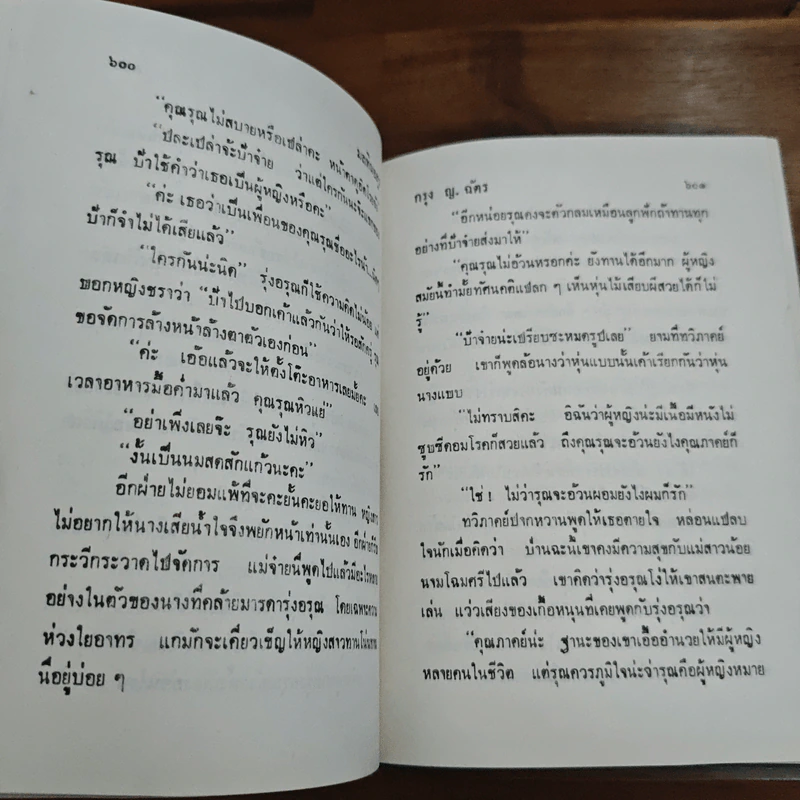 ๖๐๐
“คุณรุณไม่สบายหรือเปล่าคะ
“ปละเปล่าจ้ะป้าจ๋าย ว่าแต่ใครกันนะ
รุณ ป้าใช้คำว่าเธอเป็นผู้หญิงหรือคะ”
“ค่ะ เธอว่าเป็นเพื่อนของคุณรุณชื่ออะไรน้า
ป้าก็จำไม่ได้เสียแล้ว”
“ใครกันน่ะนิด” รุ่งอรุณก็ใช้ความคิดไม่น้อย
พอกหญิงชราว่า “ป้าไปบอกเค้าแล้วกันว่าให้รอสักครู่
ขอจัดการล้างหน้าล้างตาตัวเองก่อน”
“ค่ะ เอ๊อแล้วจะให้ตั้งโต๊ะอาหารเลยมั้ยคะ
เวลาอาหารมื้อค่ำมาแล้ว คุณรุณหิวแย่”
“อย่าเพิ่งเลยจ๊ะ รุณยังไม่หิว”
“งั้นเป็นนมสดสักแก้วนะคะ”
อีกฝ่ายไม่ยอมแพ้ที่จะคะยั้นคะยอให้ทาน
ไม่อยากให้นางเสียน้ำใจจึงพยักหน้าเท่านั้นเอง
กระวีกระวาดไปจัดการ แม่จ๋ายนี่พูดไปแล้วมีอะไรหลาย
อย่างในตัวของนางที่คล้ายมารดารุ่งอรุณ โดยเฉพาะความ
ห่วงใยอาทร แกมักจะเคี่ยวเข็ญให้หญิงสาวทานโน่นทาน
นี่อยู่บ่อย ๆ
กรุง ญ. ฉัตร ๖๐๑
“อีกหน่อยรุณคงจะตัวกลมเหมือนลูกฟักถ้าทานทุก
อย่างที่ป้าจ๋ายส่งมาให้”
“คุณรุณไม่อ้วนหรอกค่ะ ยังทานได้อีกมาก ผู้หญิง
สมัยนี้ทำมั้ยทัศนคติแปลก ๆ เห็นหุ่นไม้เสียบผีสวยได้ก็ไม่
รู้”
“ป้าจ๋ายน่ะเปรียบซะหมดรูปเลย” ยามที่ทวิภาคย์
อยู่ด้วย เขาก็พูดล้อนางว่าหุ่นแบบนั้นเค้าเรียกกันว่าหุ่น
นางแบบ
“ไม่ทราบสิคะ อิฉันว่าผู้หญิงน่ะมีเนื้อมีหนังไม่
ซูบซีดอมโรคก็สวยแล้ว ถึงคุณรุณจะอ้วนยังไงคุณภาคย์ก็
รัก”
“ใช่ ! ไม่ว่ารุณจะอ้วนผอมยังไงผมก็รัก”
ทวิภาคย์ปากหวานพูดให้เธอตายใจ หล่อนแปลบ
ใจนักเมื่อคิดว่า ป่านฉะนี้เขาคงมีความสุขกับแม่สาวน้อย
นงมโฉมศรีไปแล้ว เขาคิดว่ารุ่งอรุณโง่ให้เขาสนตะพาย
เล่น แว่วเสียงของเกื้อหนุนที่เคยพูดกับรุ่งอรุณว่า
“คุณภาคย์น่ะ ฐานะของเขาเอื้ออำนวยให้มีผู้หญิง
หลายคนในชีวิต แต่รุณควรภูมิใจน่ะว่ารุณคือผู้หญิงหมาย